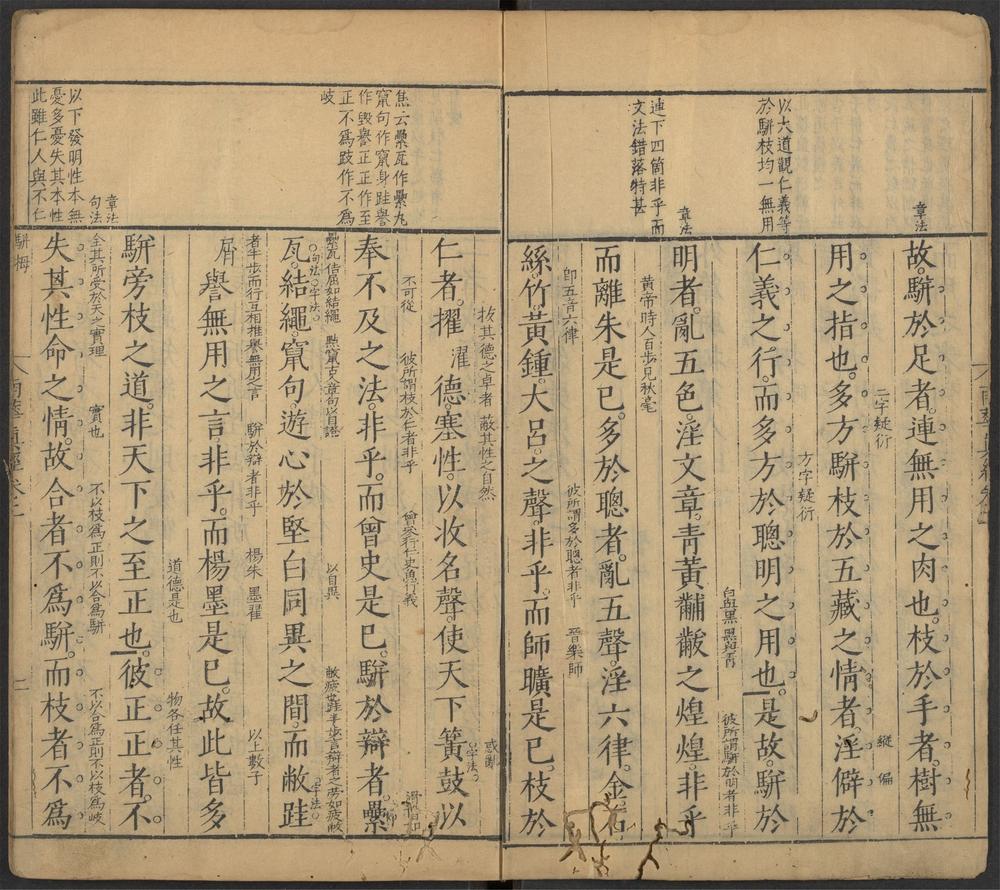 以大道觀仁義等
於駢枝均一無用
章法
連下四箇非乎而
文法錯落特甚
章法
故駢於足者連無用之肉也枝於手者樹無
二字疑衍
縱
偏
用之指也多方駢枝於五藏之情者淫僻於
方字疑衍
仁義之行而多方於聰明之用也是故駢於
白與黑
黑與靑
彼所謂駢於明者非乎
明者亂五色淫文章靑黃黼黻之煌煌非乎
黃帝時人百步見秋毫
而離朱是已多於聰者亂五聲淫六律金石
卽五音六律
彼所謂多於聰者非乎
晉樂師
絲竹黃鍾大呂之聲非乎而師曠是已枝於
焦云纍瓦作纍丸
竄句作竄身跬譽
作毀譽正正作至
正不爲跂作不爲
岐
以下發明性本無
憂多憂失其本性
此雖仁人與不仁
章法
句法
拔其德之卓者
蔽其性之自然
或亂
字法
仁者擢
濯
德塞性以收名聲使天下簧鼓以
不可從
彼所謂枝於仁者非乎
曾參行仁史魚行義
奉不及之法非乎而曾史是已駢於辯者纍
纍瓦信屈如結繩
點竄古章句以自證
以自異
敝疲也跬半步也言辯者之勞如疲敝
句法
字法
字法
瓦結繩竄句遊心於堅白同異之間而敝跬
者半步而行互相推譽無用之言
駢於辯者非乎
楊朱
墨翟
以上數子
屑
譽無用之言非乎而楊墨是已故此皆多
道德是也
物各任其性
駢旁枝之道非天下之至正也彼正正者不
全其所受於天之實理
實也
不以枝爲正則不以合爲駢
不以合爲正則不以枝爲岐
失其性命之情故合者不爲駢而枝者不爲
駢拇
二